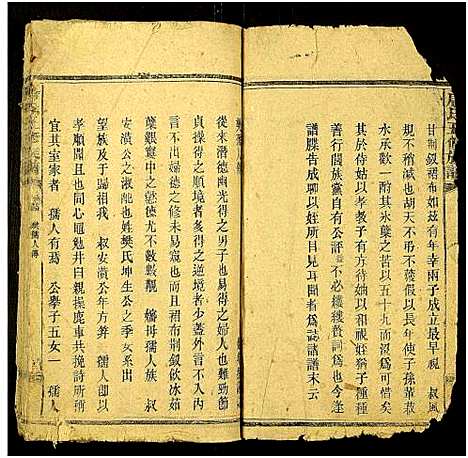 甘荆釵裙布如茲有年幸兩子成立最早視 叔風
規不減也胡天不弔不獲假以長年使子孫華萩
水承歡一酌其氷蘗之苦以五十九而溘沒爲可
惜其於侍姑以孝相夫子以和視姪猶子種種
善行闔族黨自有公評 不必縷縷贅詞爲也今逢
譜牒告成聊以姪所目見耳聞者爲誌諸譜末云
從來潛德幽光得之男子也易得之婦人也難勁節
貞操得之順境者多得之逆境者少葢外言不入內
言不出婦德之修未易窺也而裙布荆釵飲冰茹
蘗艱貞之懿德尤不數數覯 嬸母孺人族 叔
安潢公之淑配也姓樊氏坤生公之季女系出
望族及于歸相我 叔安潢公年方筓 孺人卽以
孝順聞且也同心黽勉井臼親操鹿車共挽詩所謂
宜其室家者 孺人有焉 公舉子五女一 孺人
樊孺人傳
氏五修族譜